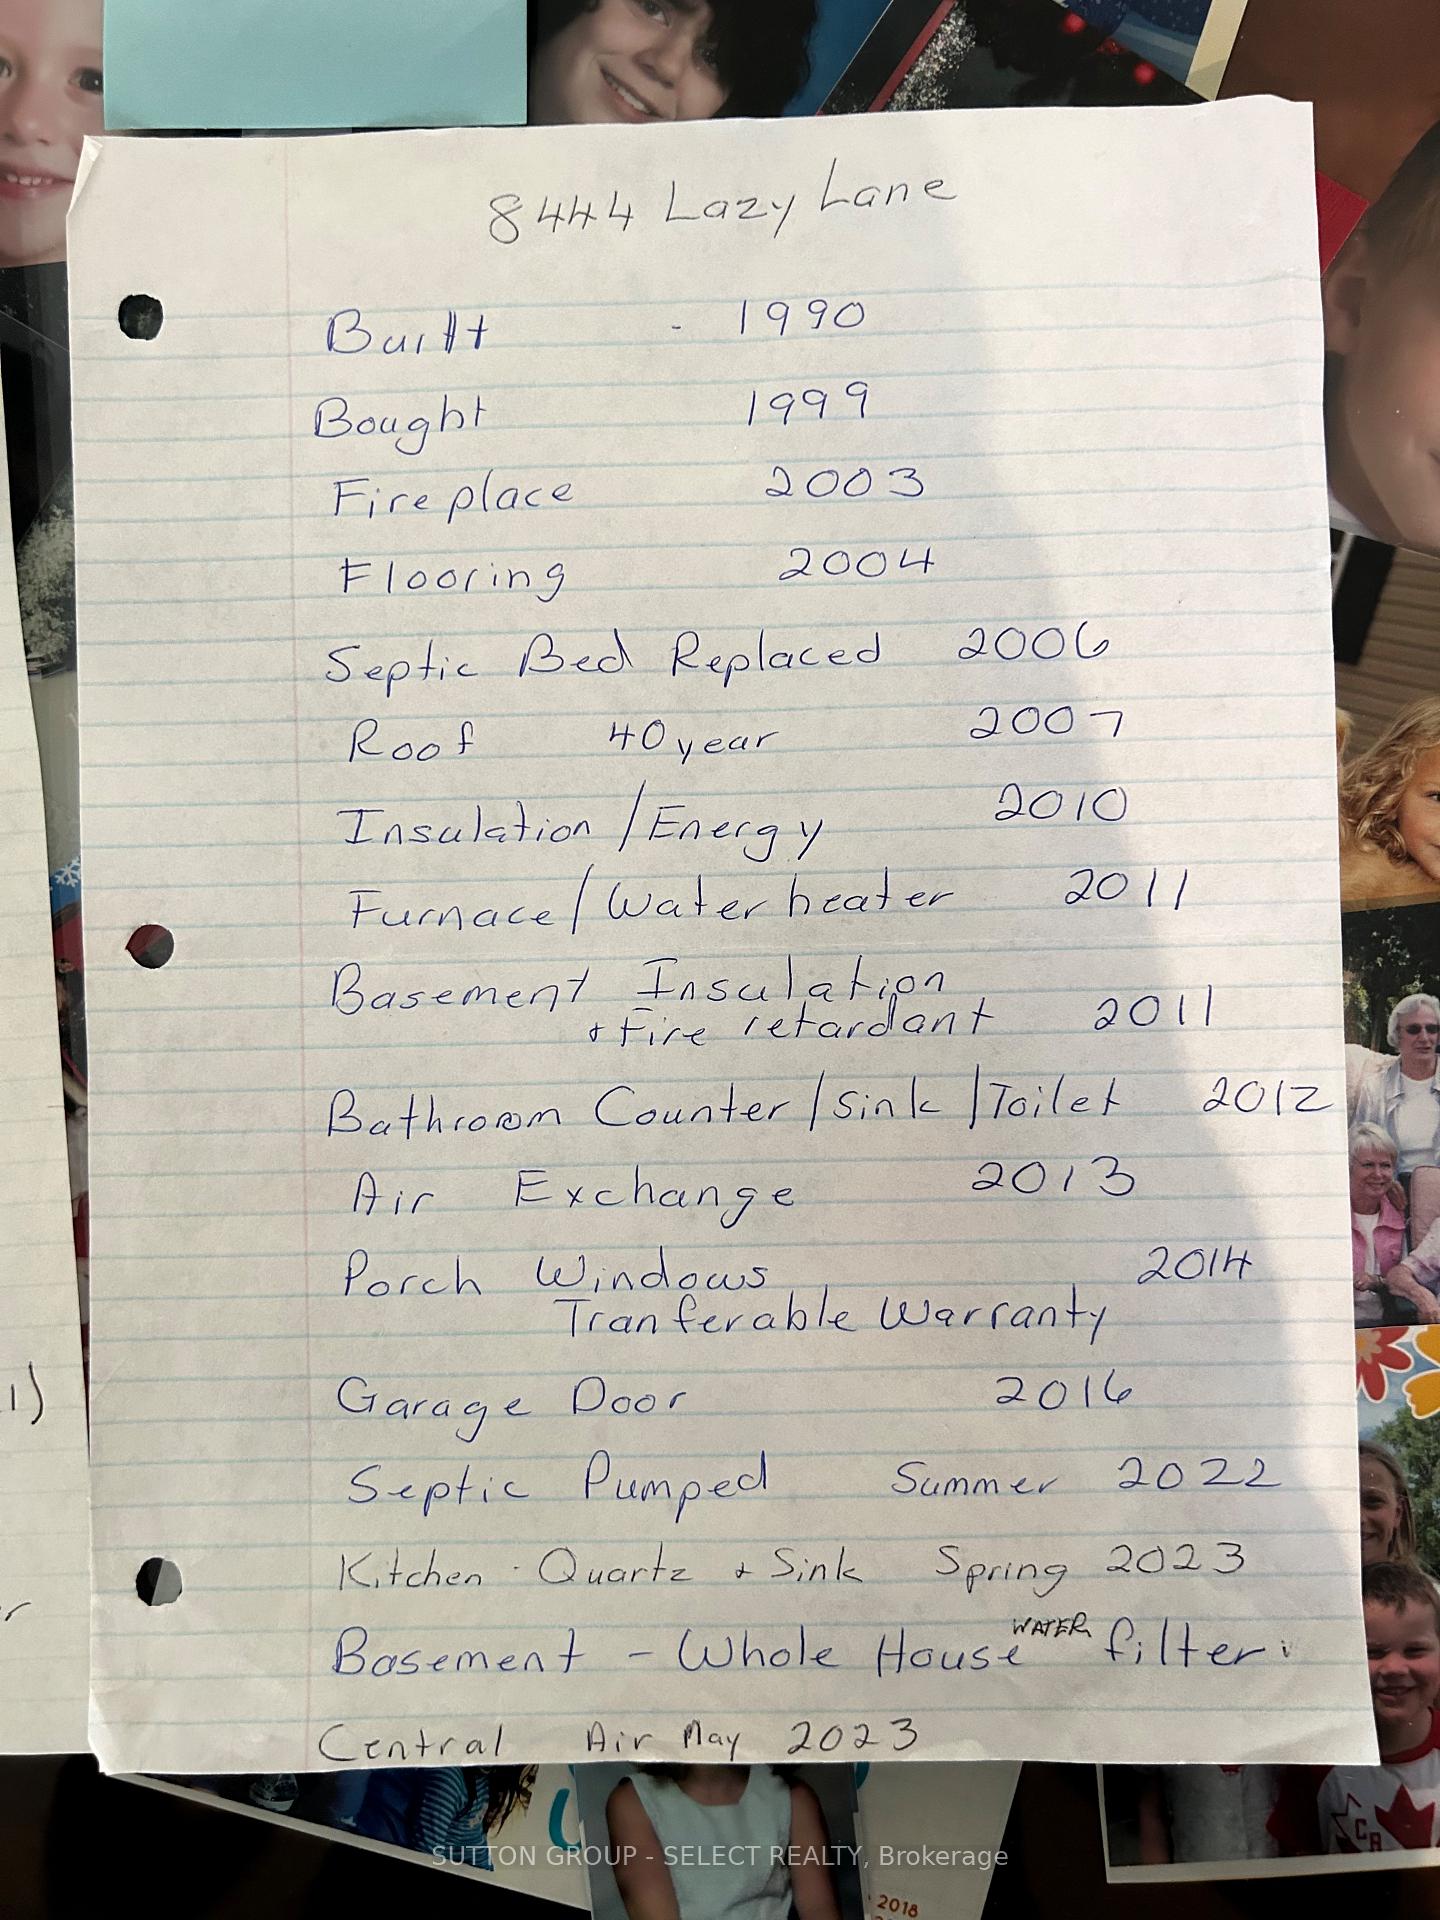 8444 Lazy Lane
Built - 1990
Bought 1999
Fireplace 2003
Flooring 2004
Septic Bed Replaced 2006
Roof 40 year 2007
Insulation / Energy 2010
Furnace / Water heater 2011
Basement Insulation
+ Fire retardant 2011
Bathroom Counter / Sink / Toilet 2012
Air Exchange 2013
Porch Windows 2014
Tranferable Warranty
Garage Door 2016
Septic Pumped Summer 2022
Kitchen - Quartz + Sink Spring 2023
Basement - Whole House WATER filter
Central Air May 2023
1)
r
SUTTON GROUP - SELECT REALTY, Brokerage
2018